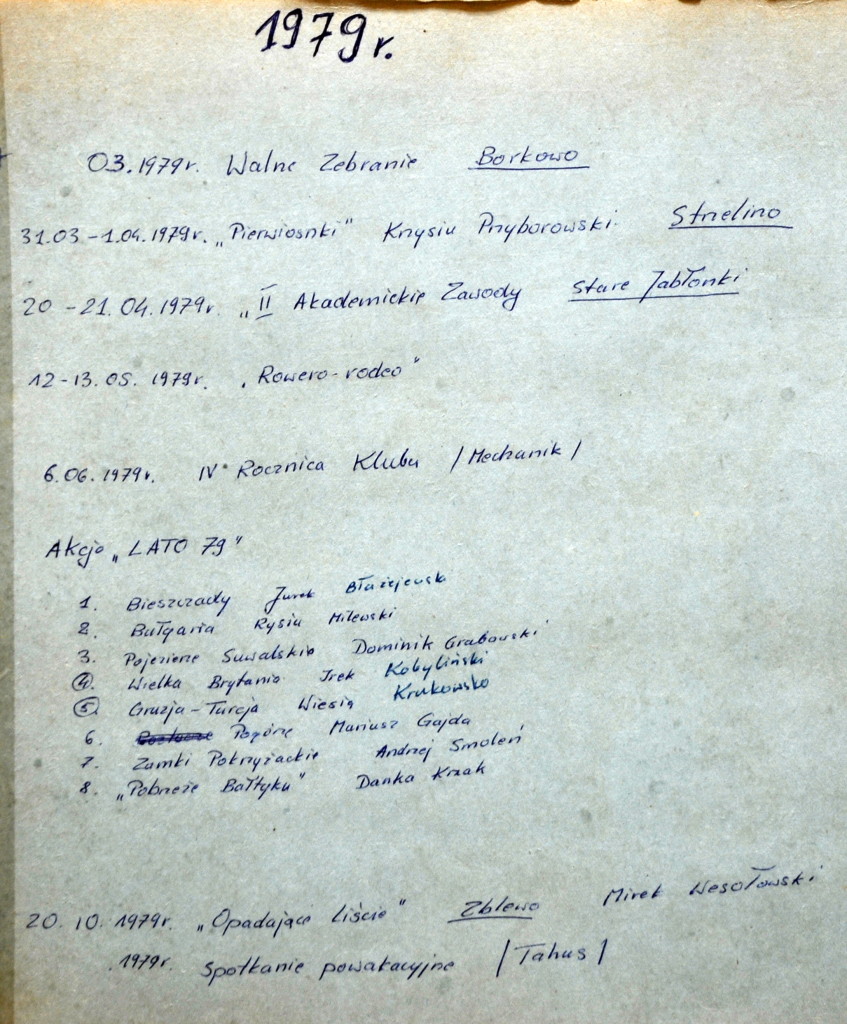 1979 r.
03.1979r. Walne Zebranie Borkowo
31.03-1.04.1979r. „Pierwiosnki" Krzysiu Przyborowski. Strzelino
20-21.04.1979r. „II Akademickie Zawody Stare Jabłonki
12-13.05.1979r. „Rowero-rodeo"
6.06.1979r. IV Rocznica Klubu /Mechanik/
Akcja „LATO 79"
1. Bieszczady Jurek
2. Bułgaria Rysiu Milewski
3. Pojezierze Suwalskie Dominik Grabowski
4. Wielka Brytania Irek Kobyliński
5. Gruzja-Turcja Wiesia Krukowska
6. Mariusz Gajda
7. Zamki Pokrzyżackie Andrzej Smoleń
8. „Pobrzeże Bałtyku" Danka Krzak
20.10.1979r. „Opadające Liście" Zblewo Mirek Wesołowski
.1979r. Spotkanie powakacyjne /Tahus/